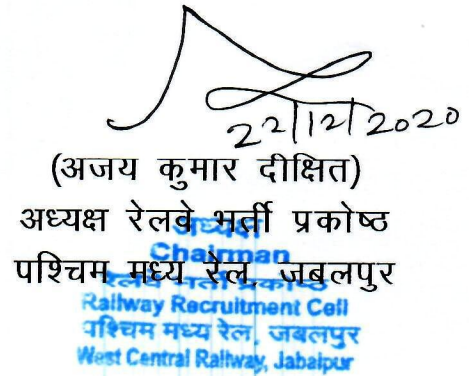 22/12/2020
(अजय कुमार दीक्षित)
अध्यक्ष रेलवे भर्ती प्रकोष्ठ
पश्चिम मध्य रेल, जबलपुर
अध्यक्ष
Chairman
रेलवे भर्ती प्रकोष्ठ
Railway Recruitment Cell
पश्चिम मध्य रेल, जबलपुर
West Central Railway, Jabalpur